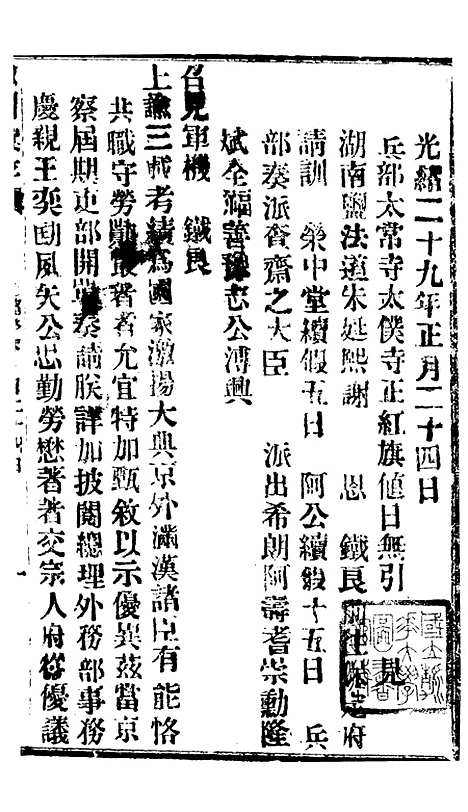 光緒二十九年正月二十四日
兵部太常寺太僕寺正紅旗值日無引 見
湖南鹽法道朱延熙謝 恩 鐵良前往保定府
請訓 榮中堂續假五日 阿公續假十五日 兵
部奏派查齋之大臣 派出希朗阿壽耆崇勳隆
斌全福善豫志公溥興
召見軍機 鐵良
上諭三載考績為國家激揚大典京外滿漢諸臣有能恪
共職守勞勩最著者允宜特加甄敘以示優異茲當京
察屆期吏部開單奏請朕詳加披閱總理外務部事務
慶親王奕劻風矢公忠勤勞懋著著交宗人府從優議